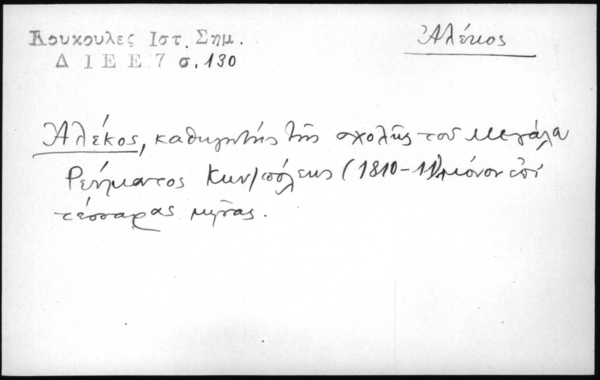 Κουκουλες Ιστ. Σημ.
Ἀλέκος
Δ Ι Ε Ε 7 σ. 130
Ἀλέκος, καθηγητής τῆς σχολῆς τοῦ Μεγάλου
Ρεύματος Κων/πόλεως (1810-11) μόνον ἐπί
τέσσαρας μῆνας.